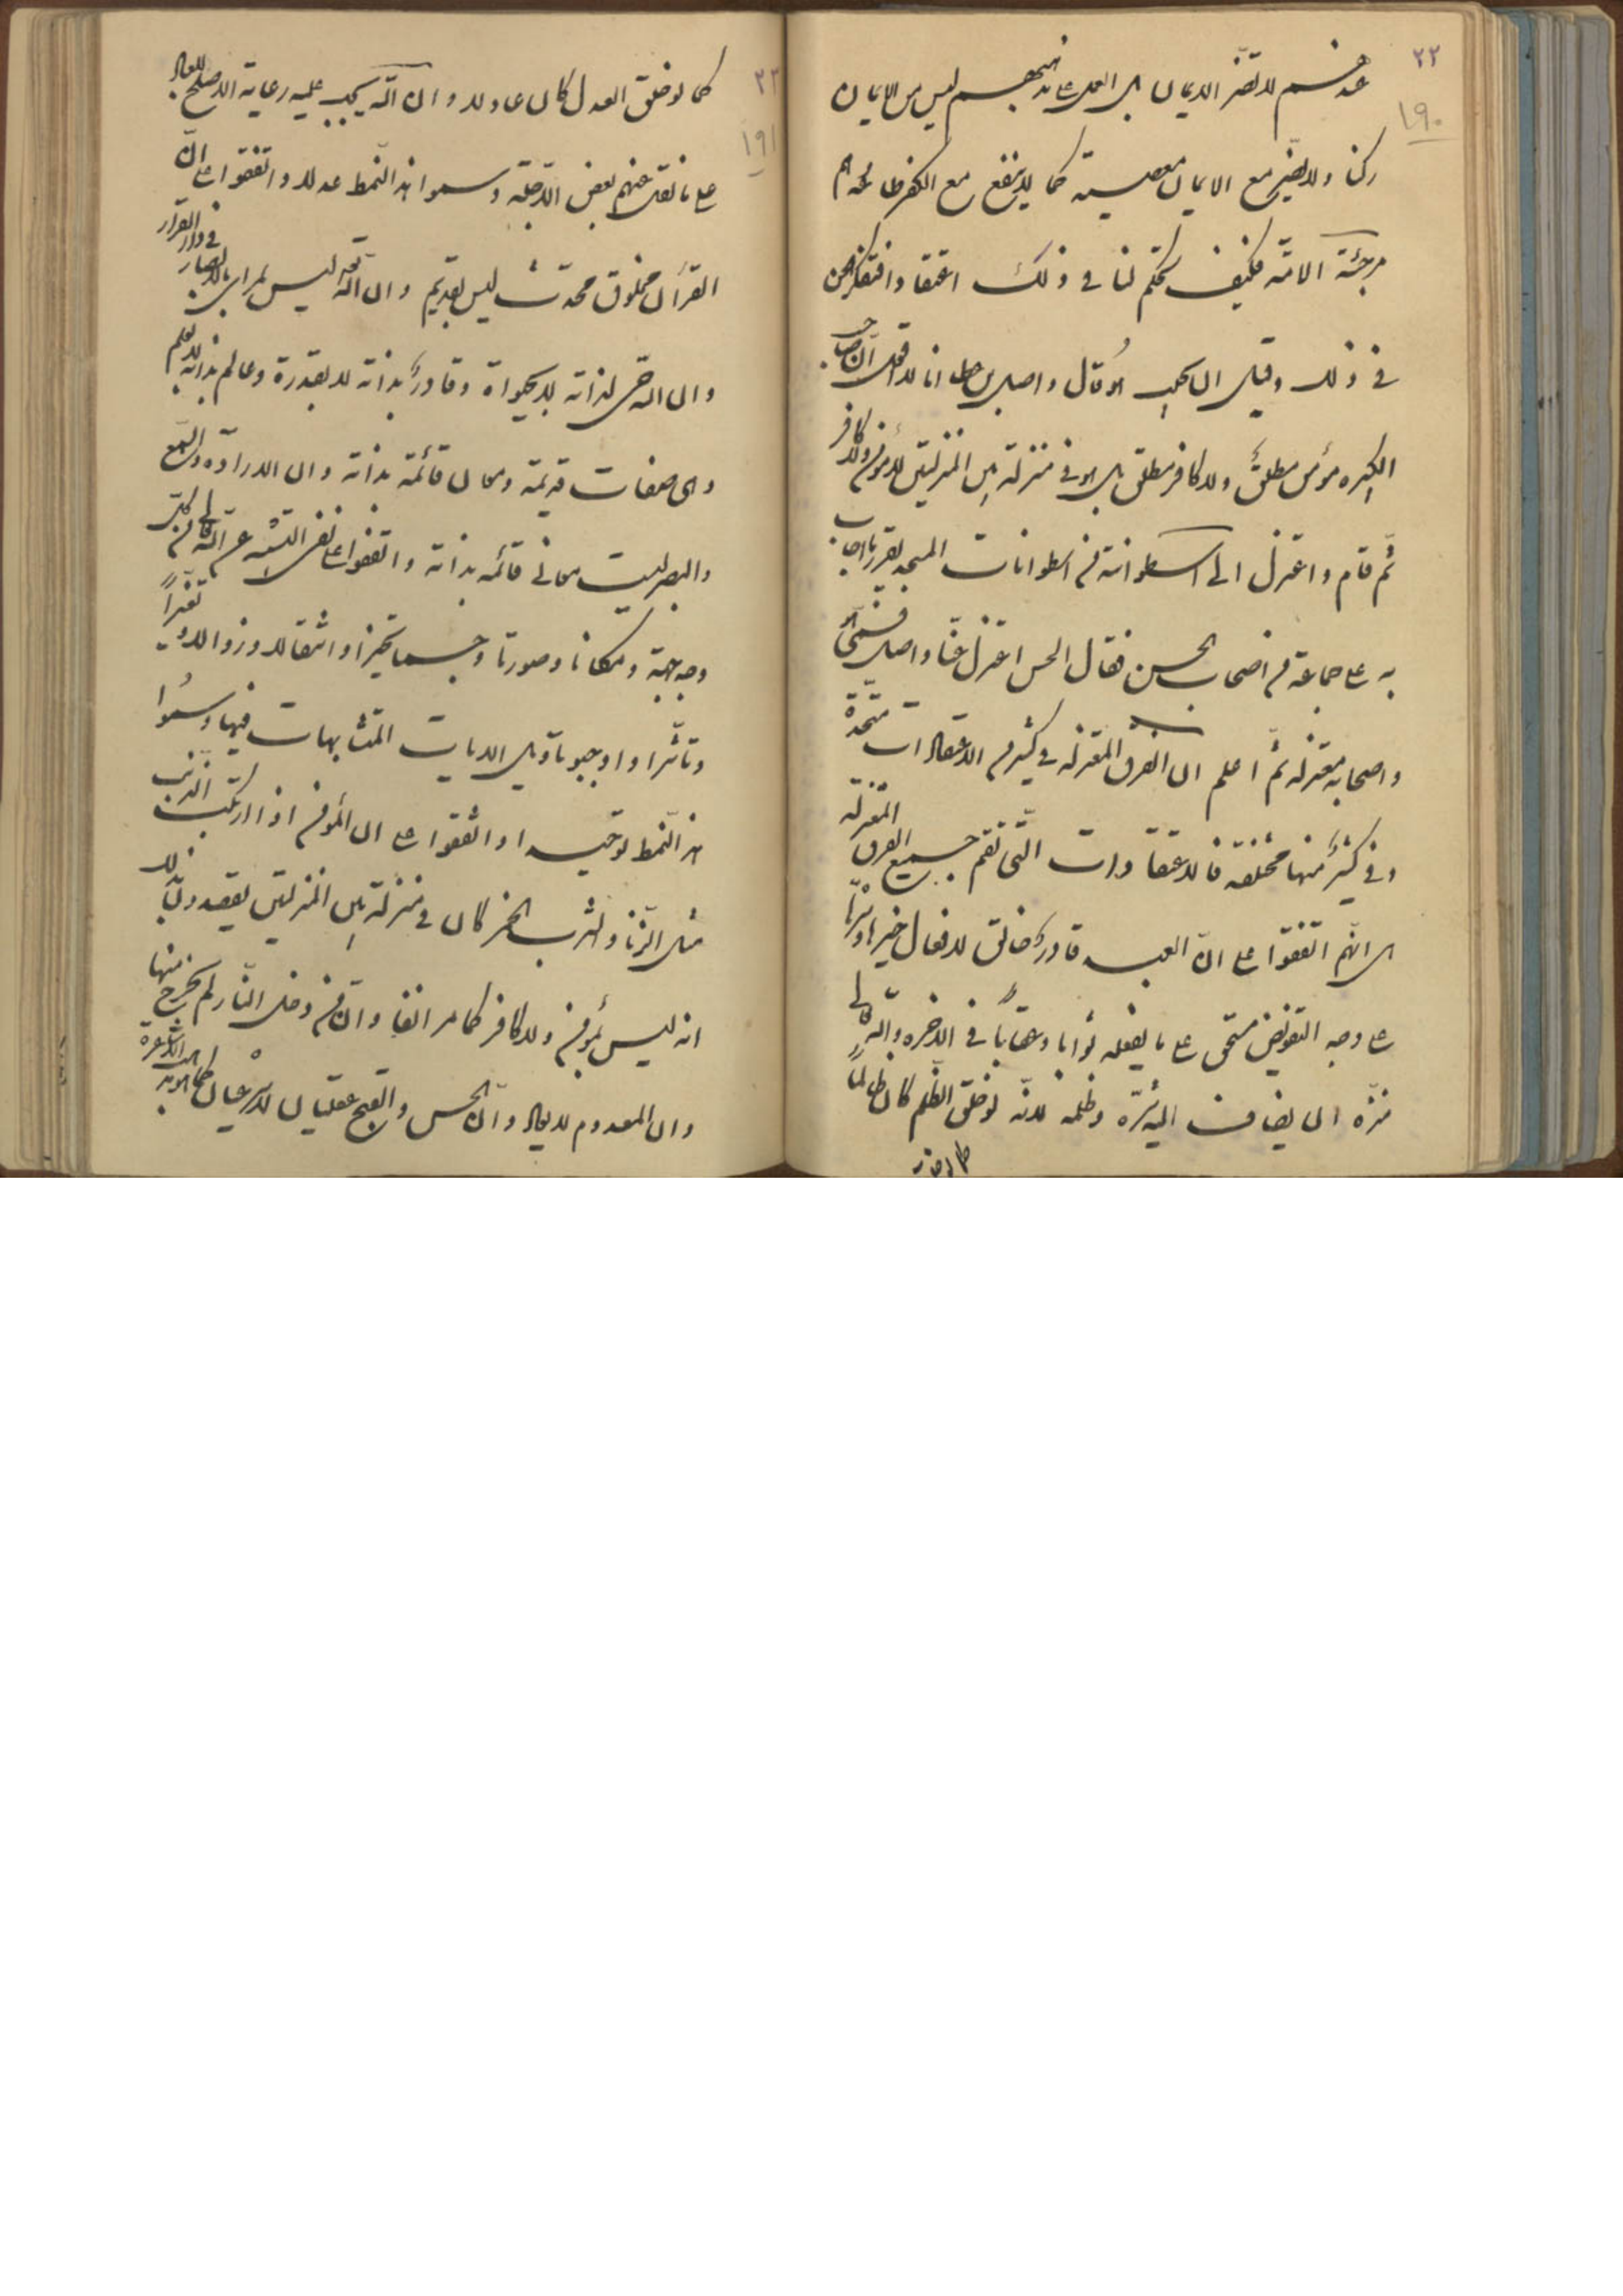 ٢٢
١٩٠
عندهم لا تضر الايمان بل العمل على مذهبهم ليس من الايمان
ركنا ولا يضر مع الايمان معصية كما لا ينفع مع الكفر طاعة وهم
مرجئة الامة فكيف تحكم لنا في ذلك اعتقادا فتفكر الحسن
في ذلك وقبل ان يجيب هو قال واصل بن عطا انا لا اقول ان صاحب
الكبيره مؤمن مطلق ولا كافر مطلق بل هو في منزلة بين المنزلتين لا مؤمن ولا كافر
ثم قام واعتزل الى اسطوانة من اسطوانات المسجد يقرر ما اجاب
به على جماعة من اصحاب الحسن فقال الحسن اعتزل عنا واصل فسمى هو
واصحابه معتزله ثم اعلم ان الفرق المعتزله في كثير من الاعتقادات متحدة
وفي كثير منها مختلفه فالاعتقادات التى تعم جميع الفرق المعتزلة
هى انهم اتفقوا على ان العبد قادر خالق لافعاله خيرها وشرها
على وجه التفويض مستحق على ما يفعله ثوابا وعقابا في الاخره والله تعالى
منزه ان يضاف اليه شر وظلم لانه لو خلق الظلم كان ظالما
كما لو خلق
٢٣
١٩١
كما لو خلق العدل كان عادلا وان الله يجب عليه رعاية الاصلح للعباد
على ما نقل عنهم بعض الاجلة وسموا هذا النمط عدلا واتفقوا على ان
القرآن مخلوق محدث ليس بقديم وان الله تعالى ليس بمرئى بالابصار في دار القرار
وان الله حى لذاته لا بحيواة وقادر بذاته لا بقدرة وعالم بذاته لا بعلم
وهى صفات قديمة ومعان قائمة بذاته وان الارادة والسمع
والبصر ليست معانى قائمه بذاته واتفقوا على نفى التشبيه عن الله تعالى من كل
وجه جهة ومكانا وصورتا وجسما وتحيزا وانتقالا وزوالا وتغيرا
وتأثرا واوجبوا تأويل الايات المتشابهات فيها وسموا
هذا النمط توحيدا واتفقوا على ان المؤمن اذا ارتكب الذنب
مثل الزنا وشرب الخمر كان في منزلة بين المنزلتين يقصدون
انه ليس بمؤمن ولا كافر كما مر انفا وان من دخل النار لم يخرج منها
وان المعدوم وان الحسن والقبح عقليان لا شرعيان كما هو عند الاشاعرة